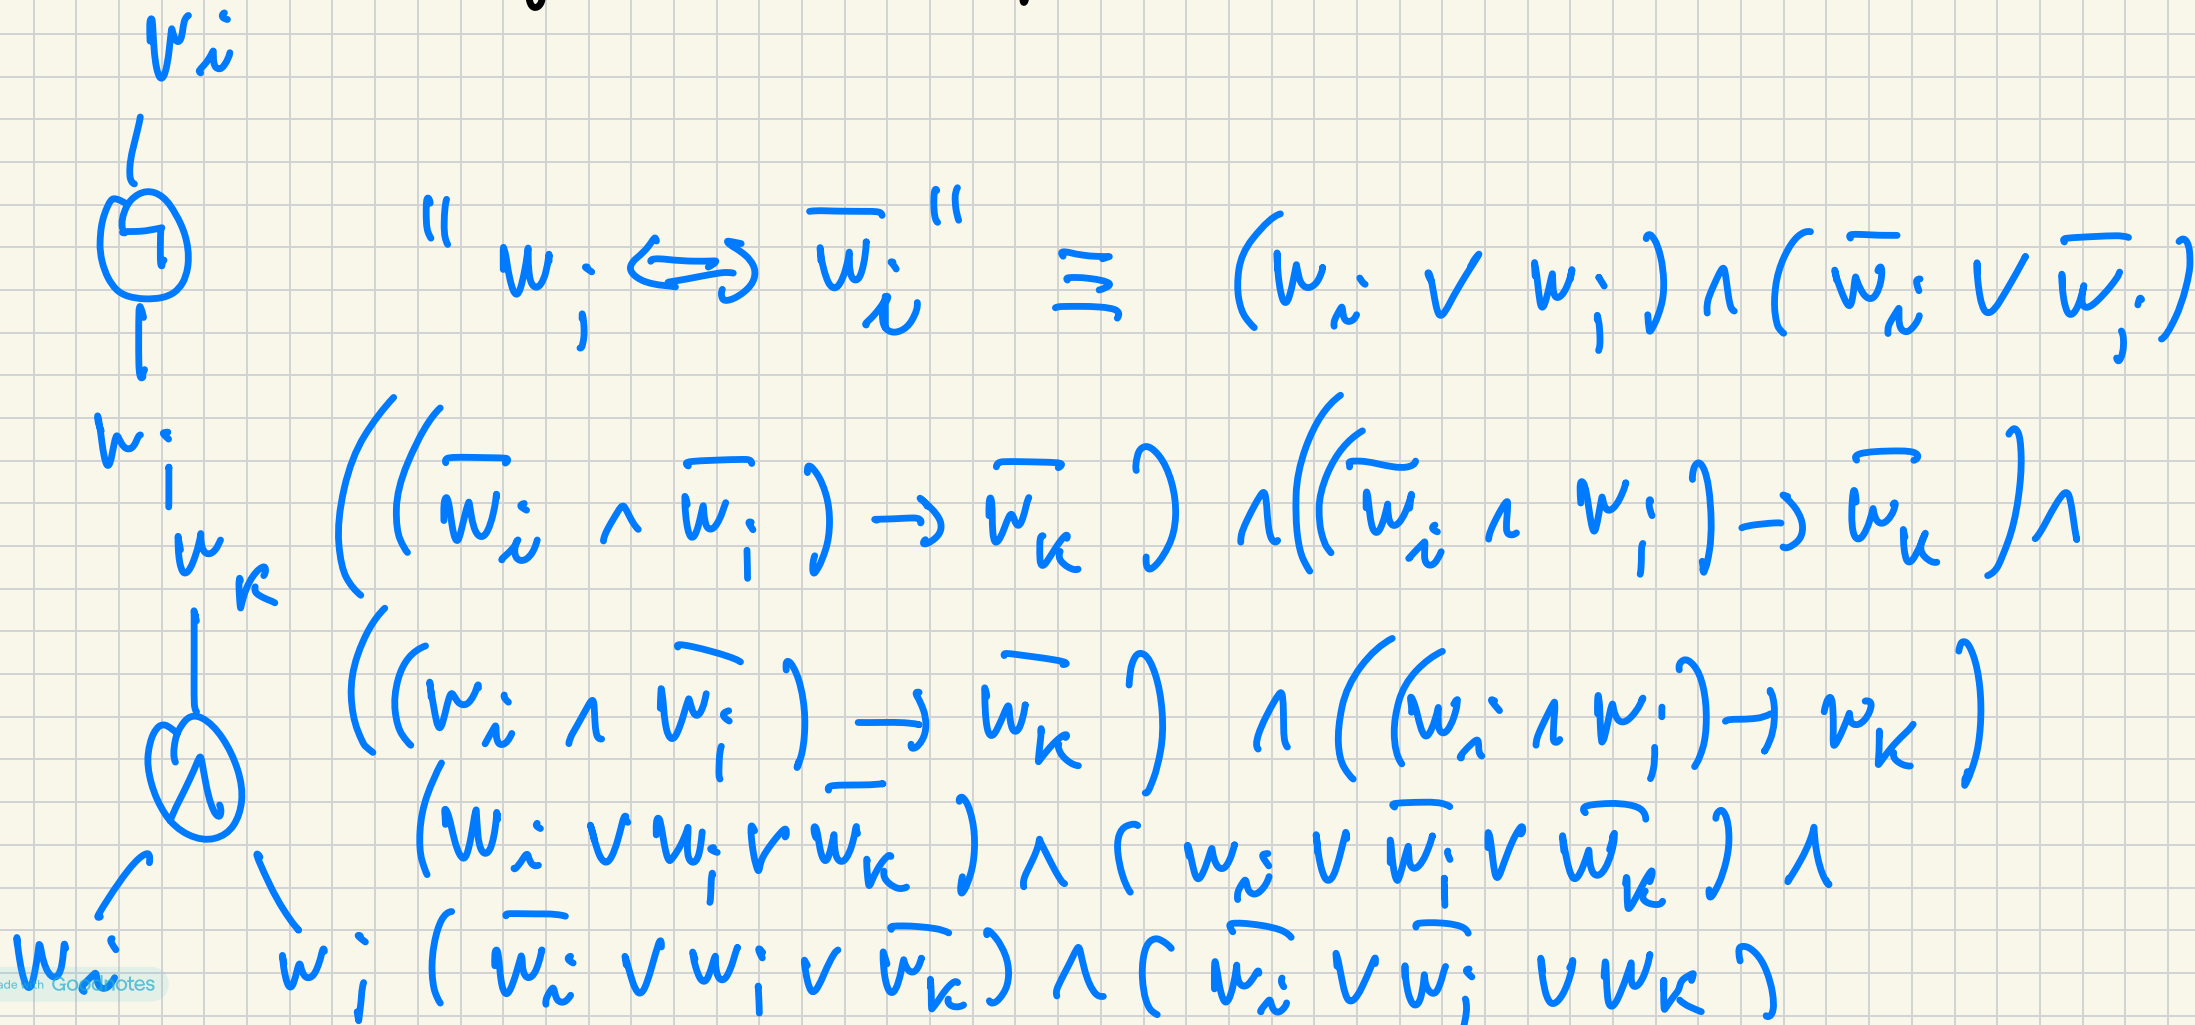 w_i
¬
" w_j ⟺ w̅_i " ≡ (w_i ∨ w_j) ∧ (w̅_i ∨ w̅_j)
w_j
((w̅_i ∧ w̅_j) → w̅_k) ∧ ((w̅_i ∧ w_j) → w̅_k) ∧
w_k
((w_i ∧ w̅_j) → w̅_k) ∧ ((w_i ∧ w_j) → w_k)
∧
(w_i ∨ w_j ∨ w̅_k) ∧ (w_i ∨ w̅_j ∨ w̅_k) ∧
w_i w_j (w̅_i ∨ w_j ∨ w̅_k) ∧ (w̅_i ∨ w̅_j ∨ w_k)
ade with Goodnotes